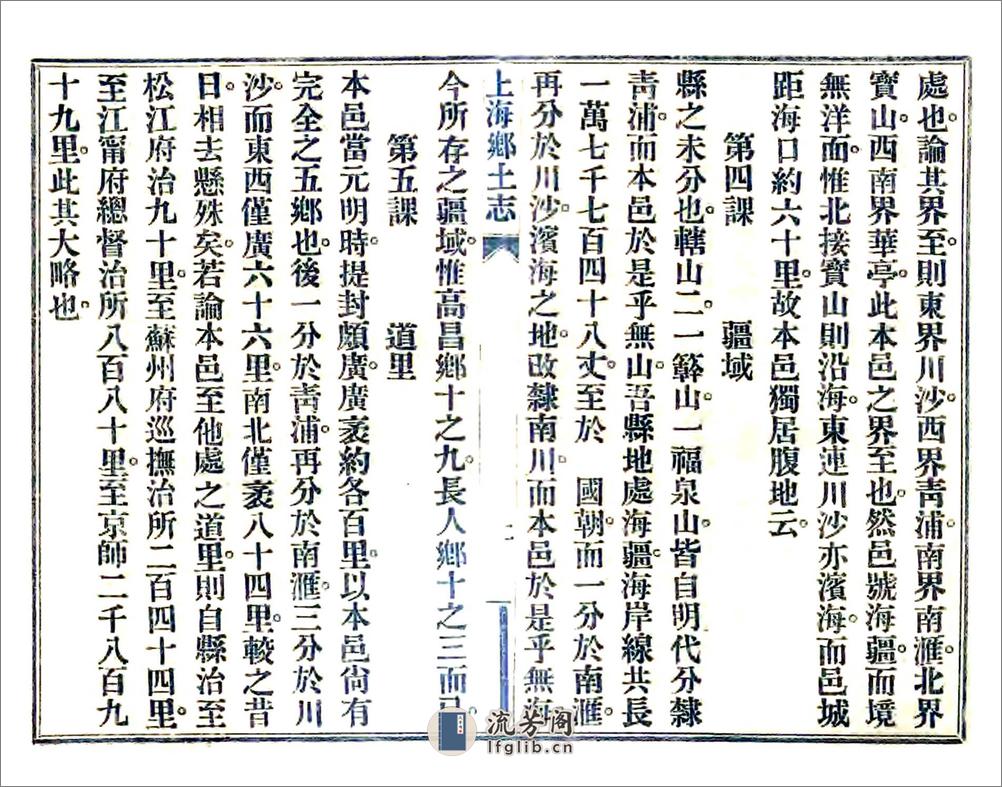 處也。論其界至。則東界川沙。西界靑浦。南界南滙。北界
寶山。西南界華亭。此本邑之界至也。然邑號海疆。而境
無洋面。惟北接寶山則沿海。東連川沙亦濱海。而邑城
距海口約六十里。故本邑獨居腹地云。
第四課　疆域
縣之未分也。轄山二。一簳山一福泉山。皆自明代分隸
靑浦。而本邑於是乎無山。吾縣地處海疆。海岸線共長
一萬七千七百四十八丈。至於　國朝。而一分於南滙。
再分於川沙。濱海之地。改隸南川。而本邑於是乎無海
上海鄉土志
今所存之疆域。惟高昌鄉十之九。長人鄉十之三而已。
第五課　道里
本邑當元明時。提封頗廣。廣袤約各百里。以本邑尙有
完全之五鄉也。後一分於靑浦。再分於南滙。三分於川
沙。而東西僅廣六十六里。南北僅袤八十四里。較之昔
日。相去懸殊矣。若論本邑至他處之道里。則自縣治至
松江府治九十里。至蘇州府巡撫治所二百四十四里。
至江甯府總督治所八百八十里。至京師二千八百九
十九里。此其大略也。
流芳阁
lfglib.cn